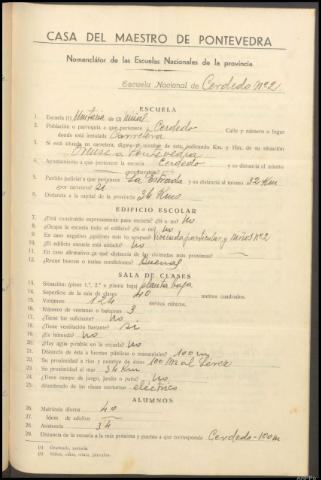 CASA DEL MAESTRO DE PONTEVEDRA
Nomenclátor de las Escuelas Nacionales de la provincia.
Escuela Nacional de Cerdedo Nº 2
ESCUELA
1. Escuela (1) Unitaria de (2) niñas
2. Población o parroquia a que pertenece Cerdedo Calle y número o lugar
donde está instalada Carretera
3. Si está situada en carretera, dígase el nombre de ésta, indicando Km. y Hm. de su situación
Orense a Pontevedra
4. Ayuntamiento a que pertenece la escuela Cerdedo y su distancia al mismo
5. Partido judicial a que pertenece La Estrada y su distancia al mismo 32 Km
¿por carretera? Si
6. Distancia a la capital de la provincia 36 Kms
EDIFICIO ESCOLAR
7. ¿Está construido expresamente para escuela? (Sí o no) No
8. ¿Ocupa la escuela todo el edificio? (Sí o no) No
9. En caso negativo ¿quiénes más lo ocupan? Vivienda particular y niños Nº 2
10. ¿El edificio escuela está aislado? No
11. En caso afirmativo ¿a qué distancia de las viviendas más próximas?
12. ¿Reune buenas o malas condiciones? Buenas
SALA DE CLASES
13. Situación (pisos 1.º, 2.º o planta baja) planta baja
14. Superficie de la sala de clases 40 metros cuadrados.
15. Volúmen 124 metros cúbicos.
16. Número de ventanas o balcones 3
17. ¿Tiene luz suficiente? No
18. ¿Tiene ventilación bastante? Si
19. ¿Es húmeda? No
20. ¿Hay agua potable en la escuela? No
21. Distancia de ésta a fuentes públicas o manantiales? 100 m
22. Su proximidad a ríos y nombre de éstos 100 m al Lérez
23. Su proximidad al mar 36 Km
24. ¿Tiene campo de juego, jardín o patio? No
25. Alumbrado de las clases nocturnas eléctrico
ALUMNOS
26. Matrícula diurna 40
27. Idem de adultos
28. Asistencia 34
29. Distancia de la escuela a la más próxima y puntos a que corresponde Cerdedo-100 m
(1) Graduada, unitaria.
(2) Niños, niñas, mixta, párvulos.